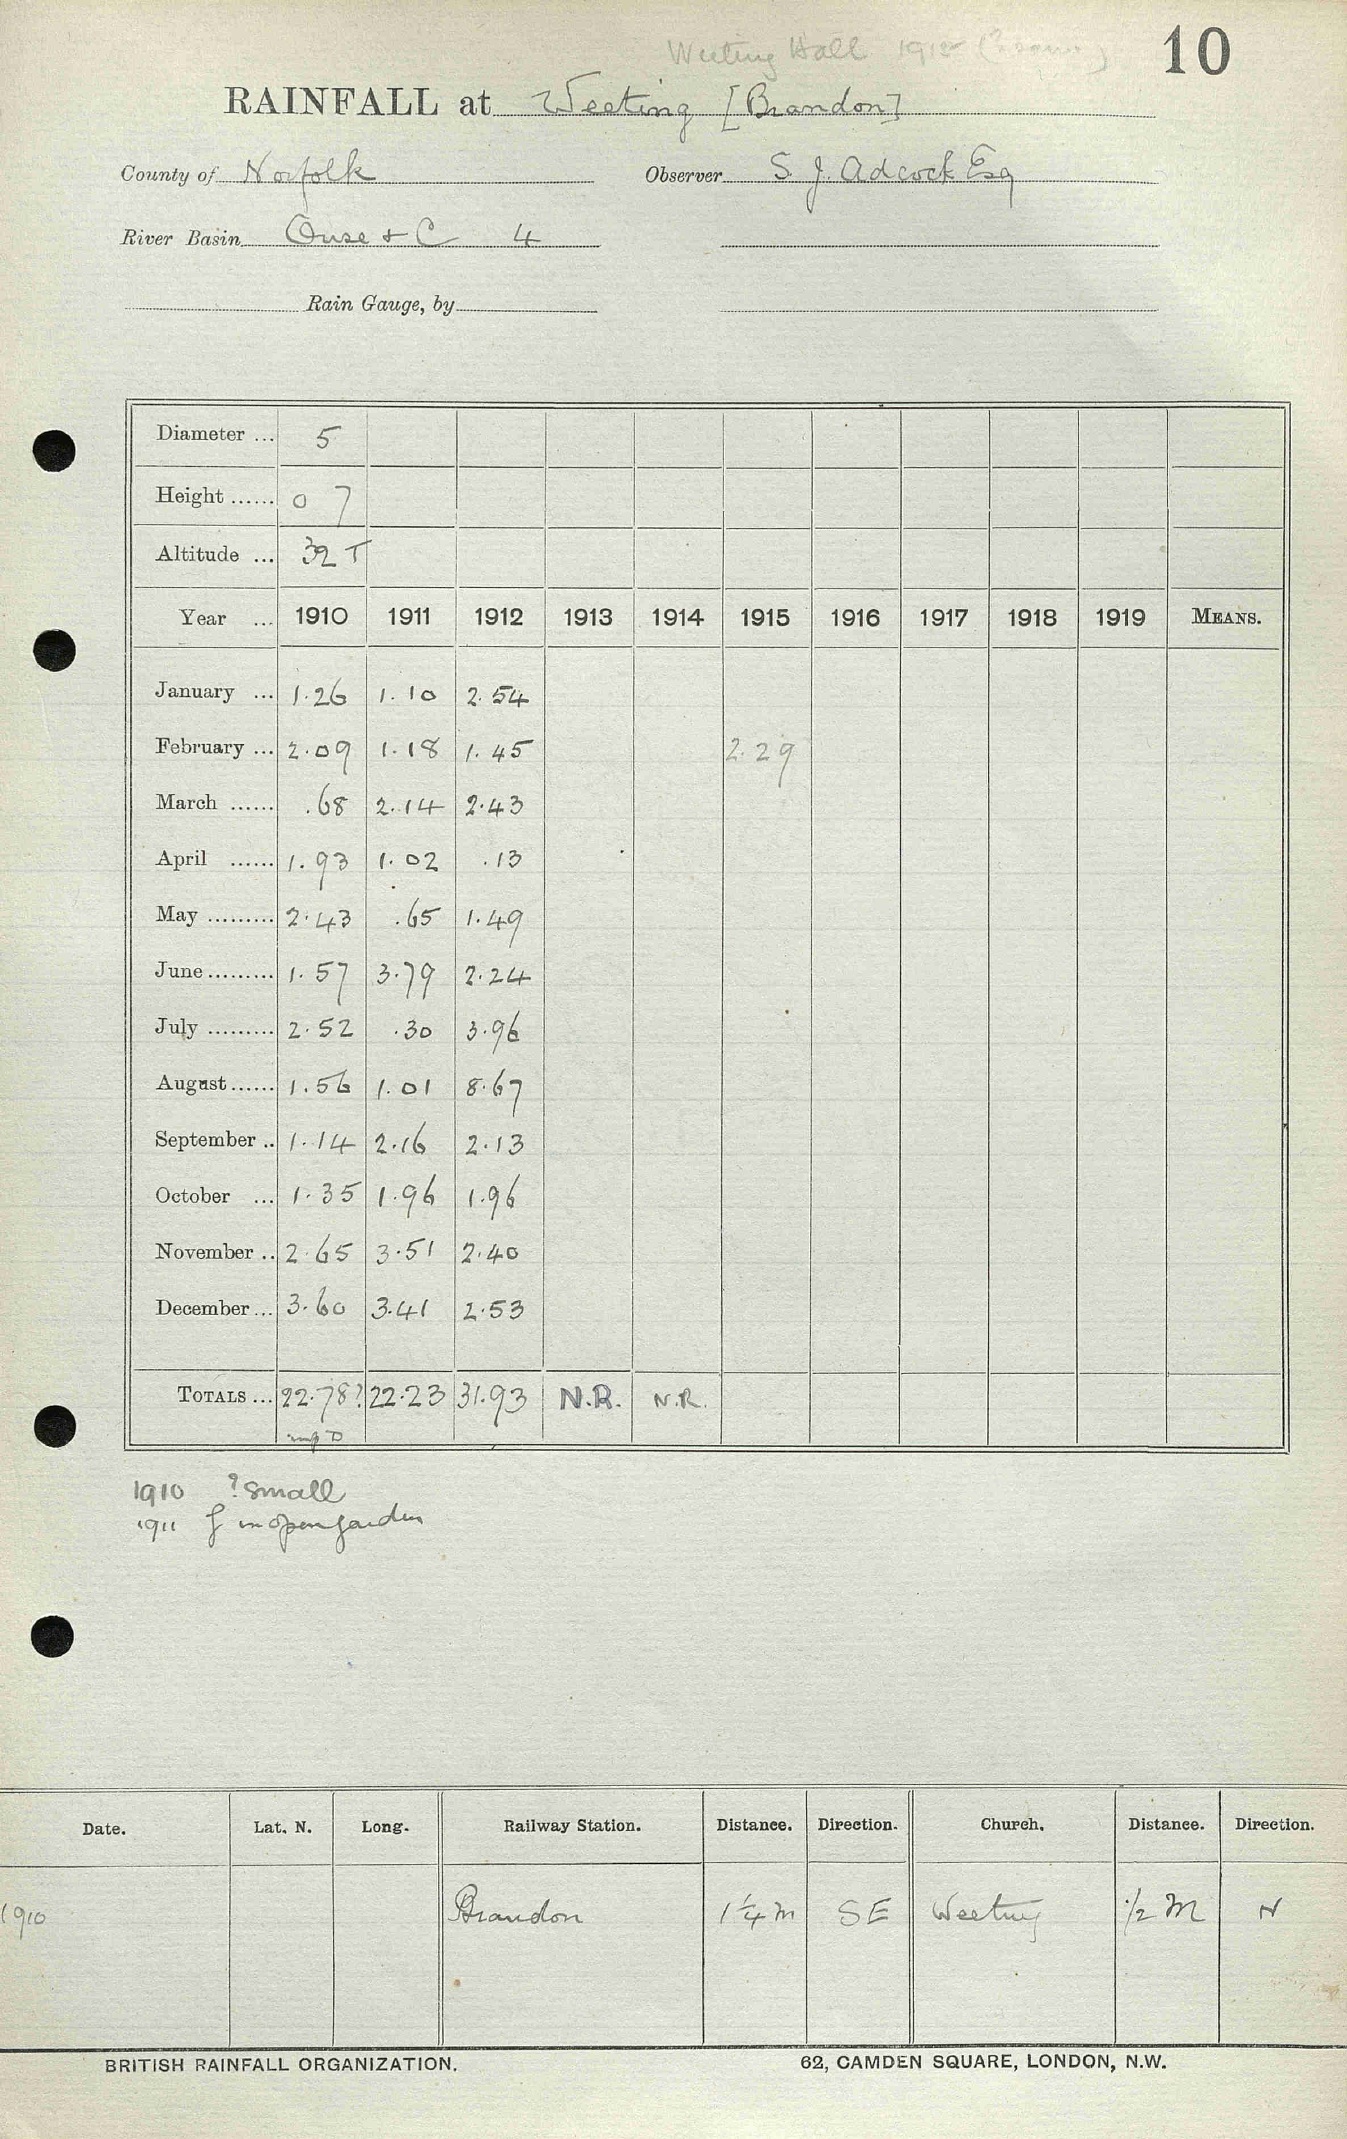 Weeting Hall 1915
10
RAINFALL at Weeting [Brandon]
County of Norfolk Observer S. J. Adcock Esq
River Basin Ouse + C 4
Rain Gauge, by
Diameter ... 5
Height ...... 0 7
Altitude ... 32 T
Year ... 1910 1911 1912 1913 1914 1915 1916 1917 1918 1919 MEANS.
January ... 1.26 1.10 2.54
February ... 2.09 1.18 1.45 2.29
March ...... .68 2.14 2.43
April ...... 1.93 1.02 .13
May ......... 2.43 .65 1.49
June ......... 1.57 3.79 2.24
July ......... 2.52 .30 3.96
August ...... 1.56 1.01 8.67
September .. 1.14 2.16 2.13
October ... 1.35 1.96 1.96
November .. 2.65 3.51 2.40
December ... 3.60 3.41 2.53
TOTALS ... 22.78? 22.23 31.93 N.R. N.R.
1910 ? small
1911 in open garden
Date. Lat. N. Long. Railway Station. Distance. Direction. Church. Distance. Direction.
1910 Brandon 1 1/4 m SE Weeting 1/2 M N
BRITISH RAINFALL ORGANIZATION. 62, CAMDEN SQUARE, LONDON, N.W.